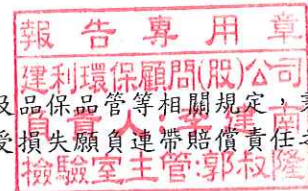 報告專用章
建利環保顧問(股)公司
及品保品管等相關規定，秉
負責人：
受損失願負連帶賠償責任
檢驗室主管:郭叔隆